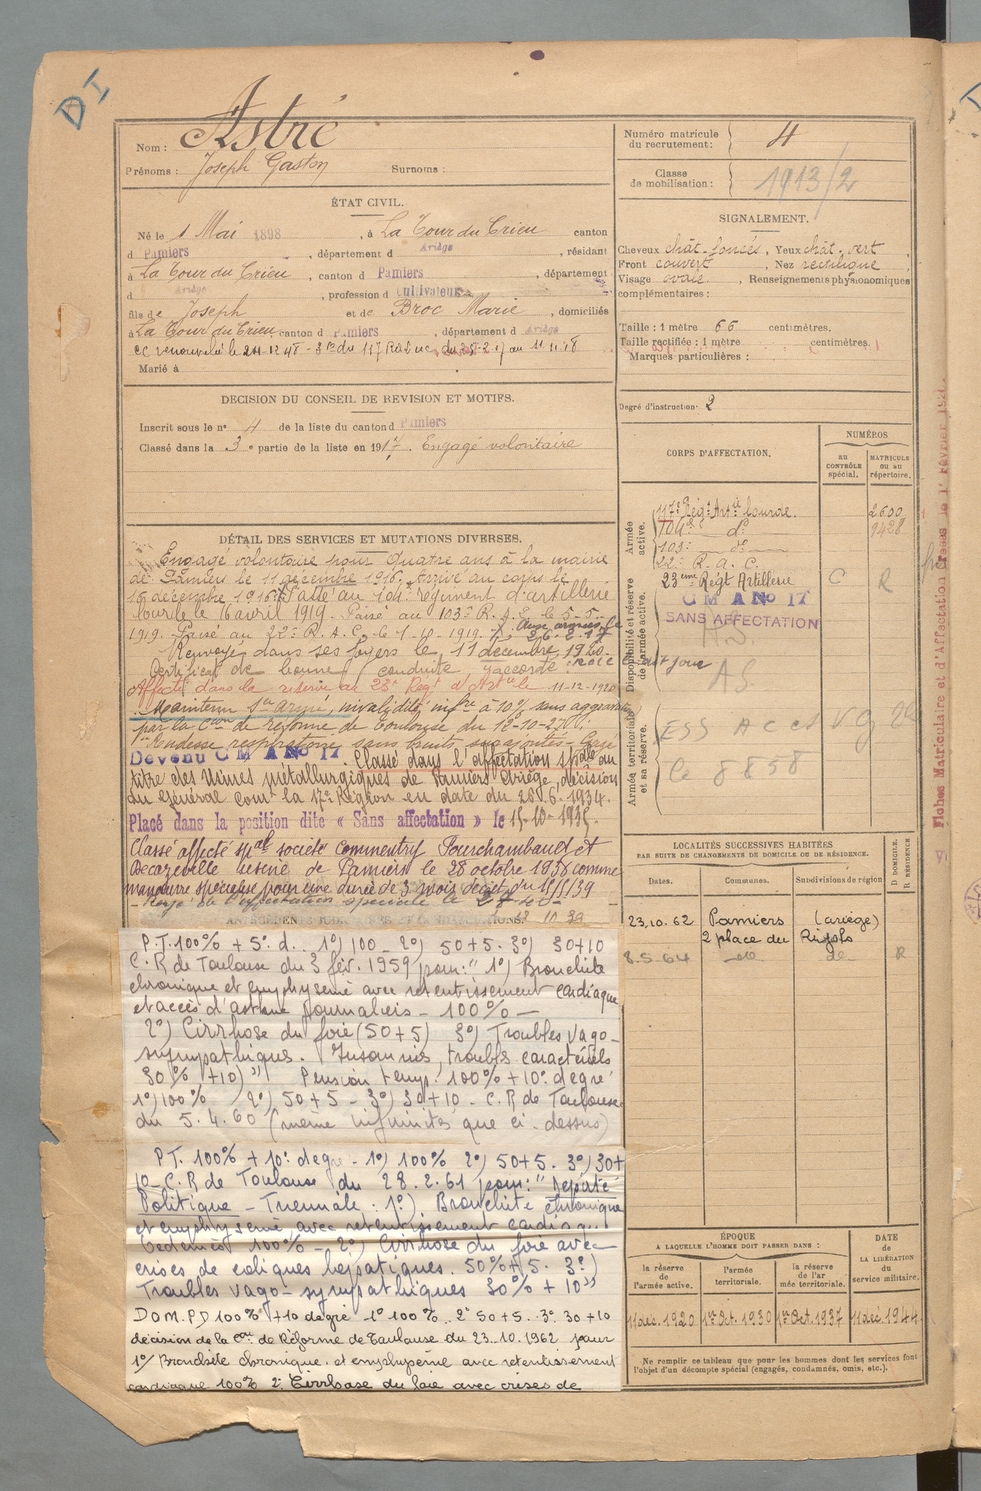 DI
Astré
Nom :
Prénoms : Joseph Gaston Surnoms :
Numéro matricule du recrutement : 4
Classe de mobilisation : 1913/2
ÉTAT CIVIL.
Né le 1 Mai 1898, à La Tour du Crieu canton
d Pamiers, département d Ariège, résidant
à La Tour du Crieu, canton d Pamiers, département
d Ariège, profession d Cultivateur
fils de Joseph et de Broc Marie, domiciliés
à La Tour du Crieu canton d Pamiers, département d Ariège
CC renouvelée le
Marié à
SIGNALEMENT.
Cheveux chât-foncés, Yeux chât. vert,
Front couvert, Nez rectiligne,
Visage ovale, Renseignements physionomiques
complémentaires :
Taille : 1 mètre 66 centimètres.
Taille rectifiée : 1 mètre centimètres.
Marques particulières :
Degré d'instruction : 2
DECISION DU CONSEIL DE REVISION ET MOTIFS.
Inscrit sous le nº 4 de la liste du canton d Pamiers
Classé dans la 3e partie de la liste en 1917. Engagé volontaire
CORPS D'AFFECTATION.
NUMÉROS
au CONTRÔLE spécial.
MATRICULE ou au répertoire.
Armée active.
117e Régt Artie lourde. 2600
104e dº 9428
103e dº
22e R. A. C.
Disponibilité et réserve de l'armée active.
23eme Régt Artillerie C R
C M A No 17
SANS AFFECTATION
A.S.
A.S.
Armée territoriale et sa réserve.
8858
DÉTAIL DES SERVICES ET MUTATIONS DIVERSES.
Engagé volontaire pour quatre ans à la mairie
de Pamiers le 11 décembre 1916. Arrivé au corps le
15 décembre 1916. Passé au 104e régiment d'artillerie
lourde le 16 avril 1919. Passé au 103e R. A. L. le 5-5-
1919. Passé au 22e R. A. C. le
Renvoyé dans ses foyers le 11 décembre 1920.
Certificat de bonne conduite accordé.
Affecté dans la réserve au 23e Régt d'Artie le 11-12-1920
Maintenu Sce armé, invalidité infre à 10% sans aggravation
par la Cion de réforme de Toulouse du 12-10-27
Rudesse respiratoire sans bruits surajoutés
Devenu C M A No 17. Classé dans l'affectation spale au
titre des Usines métallurgiques de Pamiers Ariège, décision
du Général Comt la 17e Région en date du 28.6.1934.
Placé dans la position dite « Sans affectation » le 15-10-1935.
Classé affecté spal société Commentry Fourchambault et
Decazeville usine de Pamiers le 28 octobre 1938 comme
manœuvre spécialisé pour une durée de 3 mois
Rayé de l'affectation spéciale le
P.T. 100% + 5º d. 1º) 100 - 2º) 50+5. 3º) 30+10
C. R de Toulouse du 3 fév. 1959 pour: " 1º) Bronchite
chronique et emphysème avec retentissement cardiaque
et accès d'asthme journaliers - 100% -
2º) Cirrhose du foie (50+5) 3º) Troubles vago-
sympathiques. Insomnies, troubles caractériels
30% +10) " Pension temp. 100% + 10º degré
1º) 100% 2º) 50+5 - 3º) 30+10 - C. R de Toulouse
du 5.4.60 (même infirmités que ci-dessus)
P.T. 100% + 10º degré - 1º) 100% 2º) 50+5. 3º) 30+
10 - C. R de Toulouse du 28.2.61 pour: " Déporté
Politique - Triennale : 1º) Bronchite chronique
et emphysème avec retentissement cardiaq.
Oedèmes 100% - 2º) Cirrhose du foie avec
crises de coliques hépatiques. 50%+5. 3º)
Troubles vago-sympathiques 30% + 10 "
DOM. P D 100% +10 degré - 1º 100%. 2º 50+5. 3º. 30+10
décision de la Con de Réforme de Toulouse du 23.10.1962 pour
1º/ Bronchite chronique et emphysème avec retentissement
cardiaque 100% 2º Cirrhose du foie avec crises de
LOCALITÉS SUCCESSIVES HABITÉES
PAR SUITE DE CHANGEMENTS DE DOMICILE OU DE RÉSIDENCE.
Dates. Communes. Subdivisions de région
D DOMICILE. R RÉSIDENCE
23.10.62 Pamiers (Ariège)
2 place du Rigols
8.5.64 de de R
ÉPOQUE
A LAQUELLE L'HOMME DOIT PASSER DANS :
la réserve de l'armée active.
l'armée territoriale.
la réserve de l'armée territoriale.
DATE de LA LIBÉRATION du service militaire.
11 déc. 1920 1er Oct. 1930 1er Oct. 1937 11 déc 1944
Ne remplir ce tableau que pour les hommes dont les services font
l'objet d'un décompte spécial (engagés, condamnés, omis, etc.).